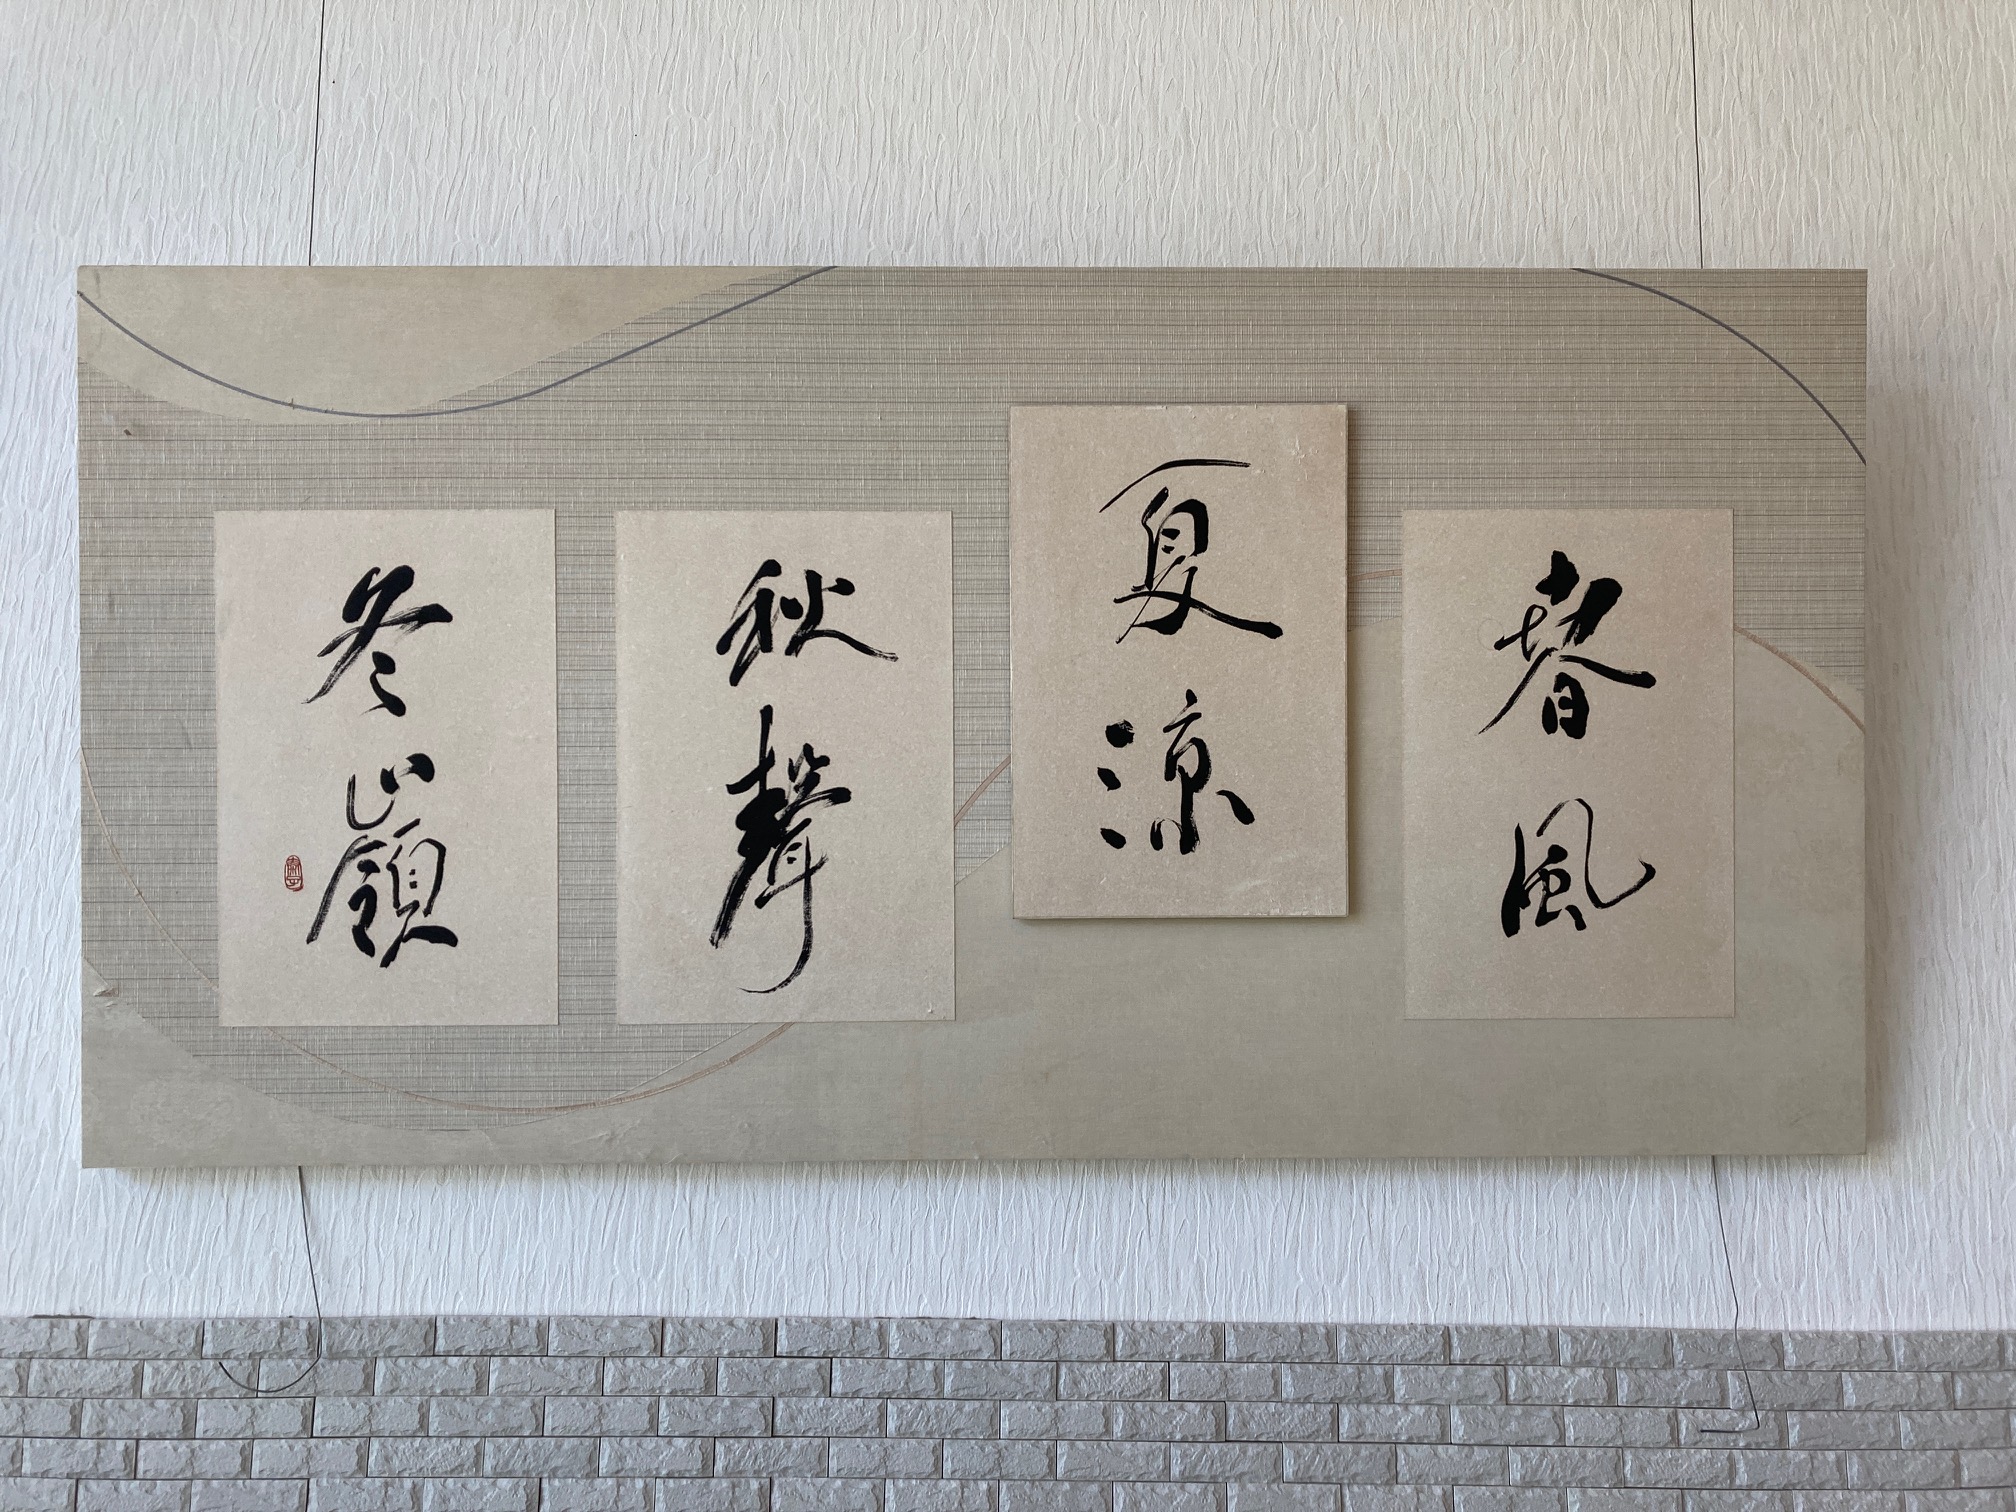 春風
夏涼
秋聲
冬嶺